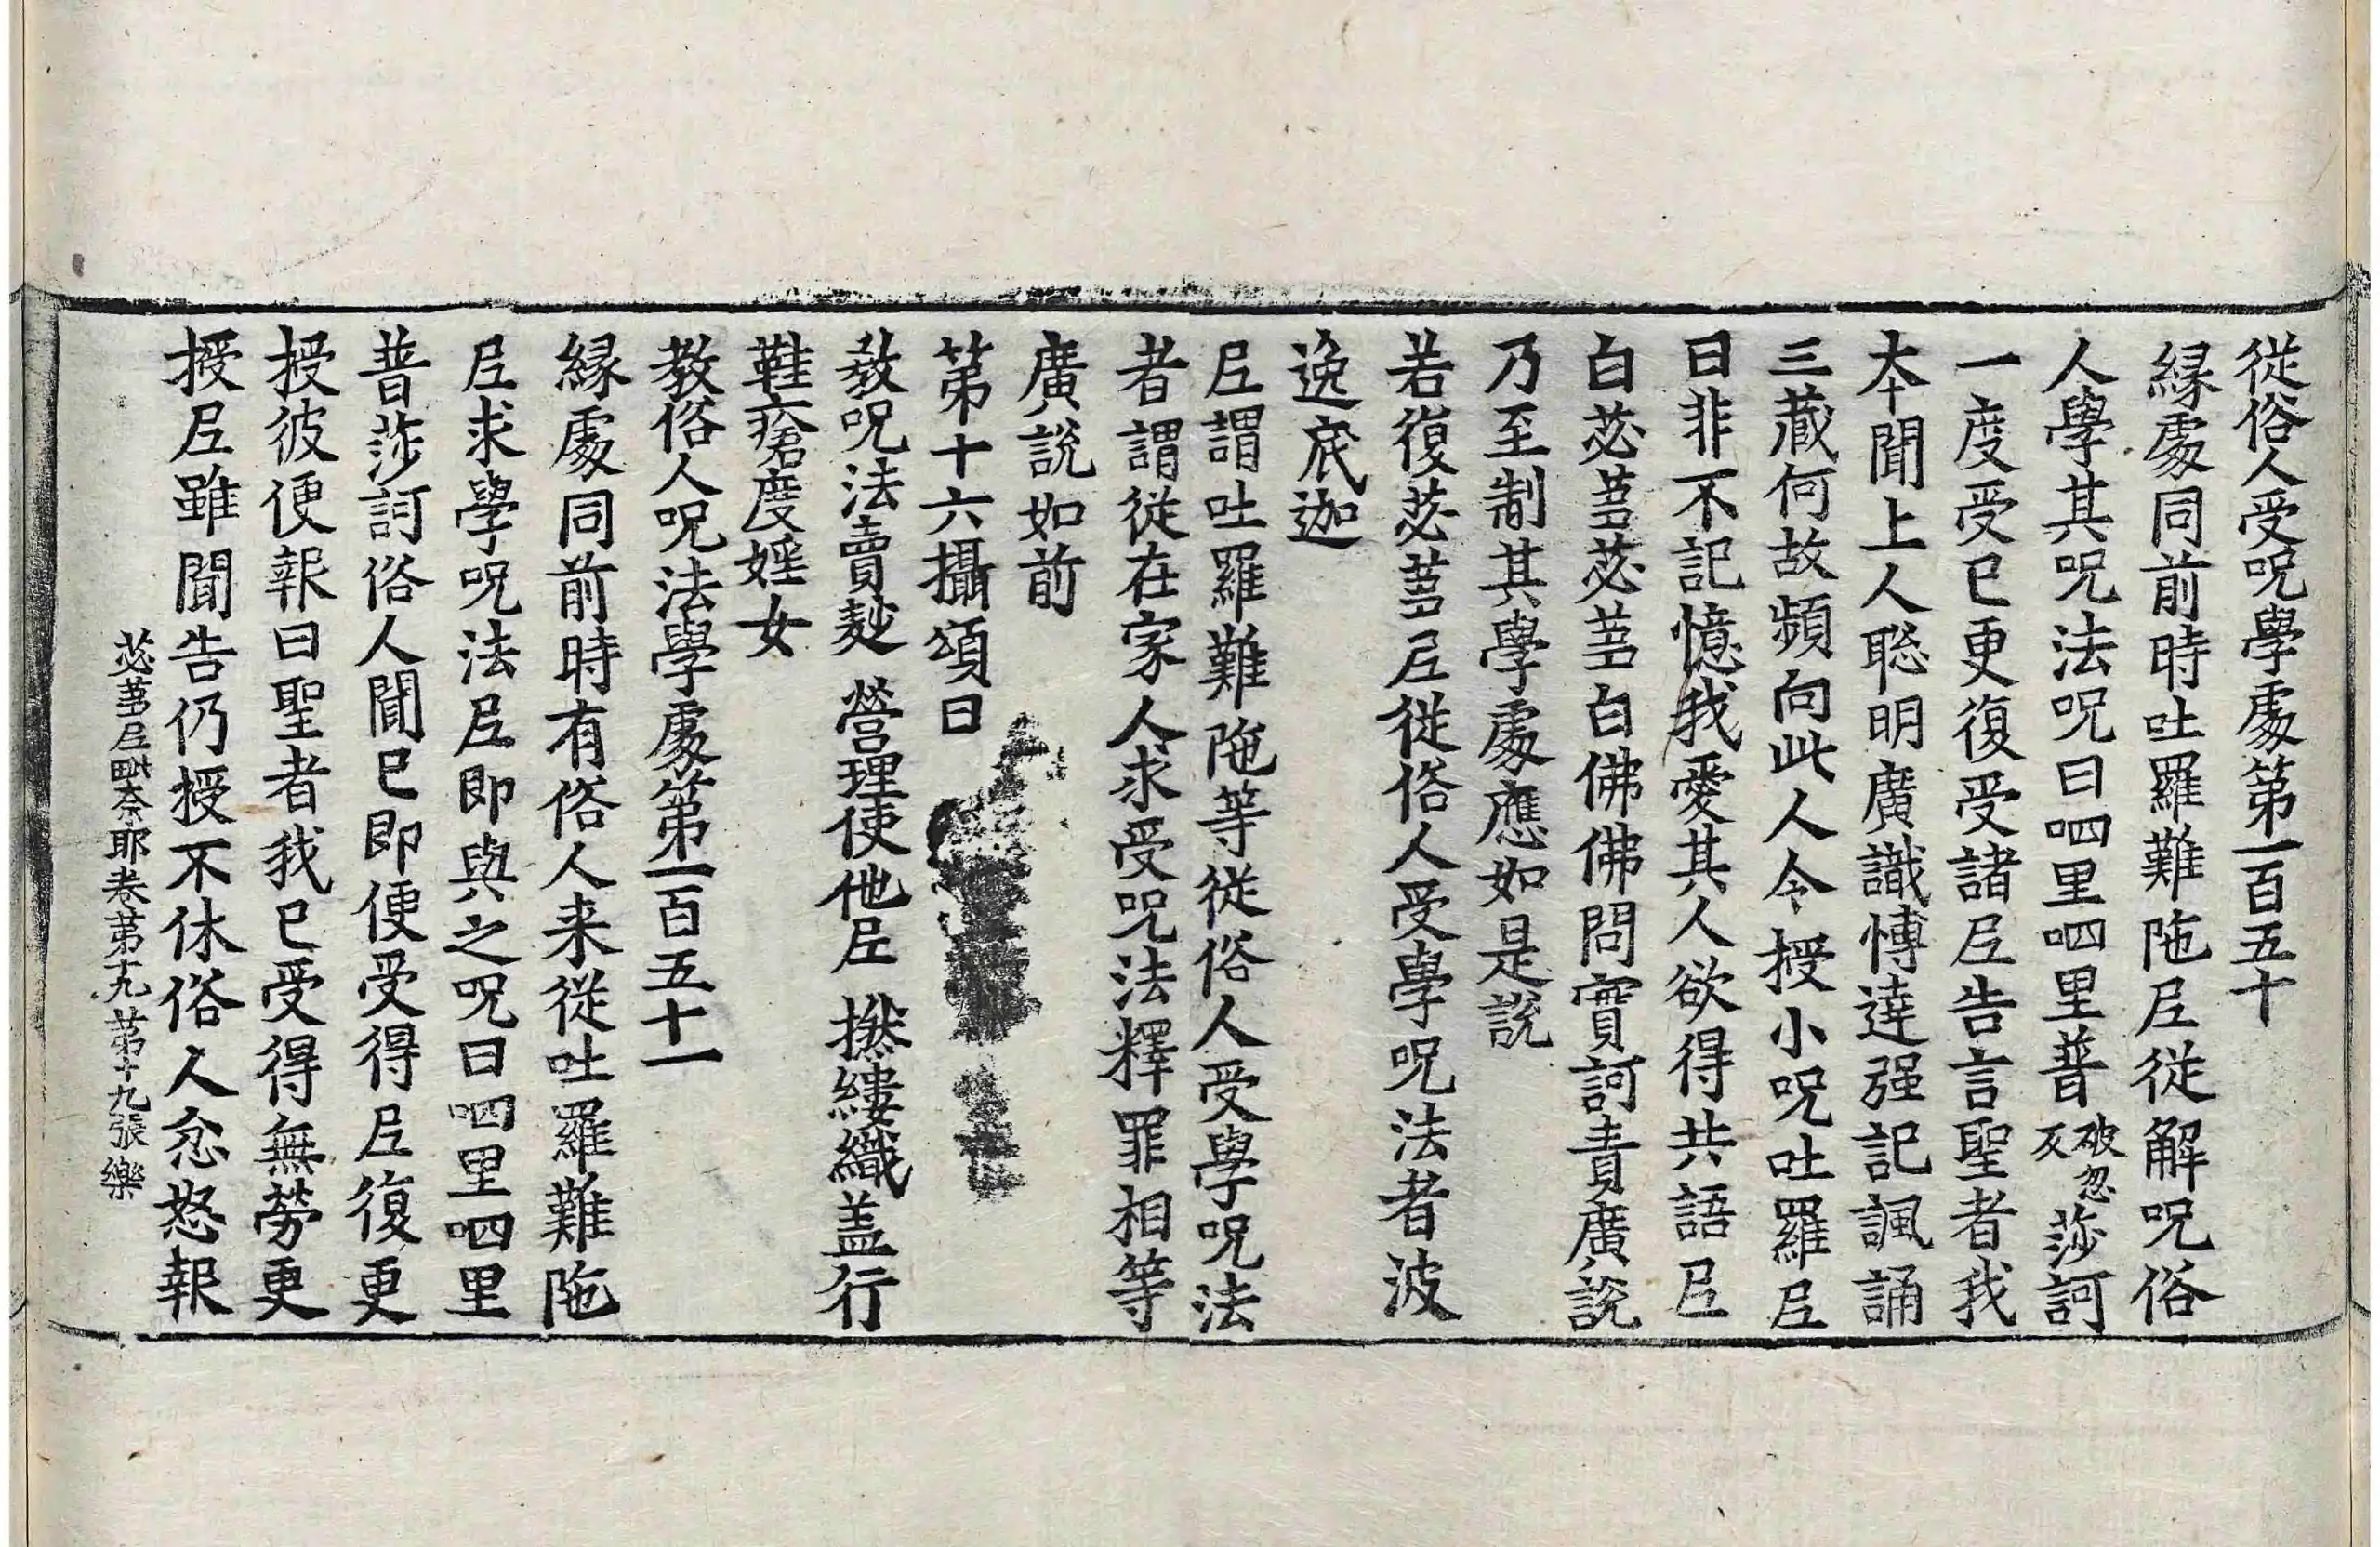 從俗人受呪學處第一百五十
緣處同前時吐羅難陁尼從解呪俗
人學其呪法呪曰呬里呬里普破忽反莎訶
一度受已更復受諸尼告言聖者我
本聞上人聡明廣識博達强記諷誦
三藏何故頻向此人令授小呪吐羅尼
曰非不記憶我愛其人欲得共語尼
白苾蒭苾蒭白佛佛問實訶責廣說
乃至制其學處應如是說
若復苾蒭尼從俗人受學呪法者波
逸底迦
尼謂吐羅難陁等從俗人受學呪法
者謂從在家人求受呪法釋罪相等
廣說如前
第十六攝頌曰
教呪法賣麨 營理使他尼 撚縷織盖行
鞋瘡度婬女
教俗人呪法學處第一百五十一
緣處同前時有俗人来從吐羅難陁
尼求學呪法尼即與之呪曰呬里呬里
普莎訶俗人聞已即便受得尼復更
授彼便報曰聖者我已受得無勞更
授尼雖聞告仍授不休俗人忿怒報
苾蒭尼毗奈耶卷第十九 第十九張 樂